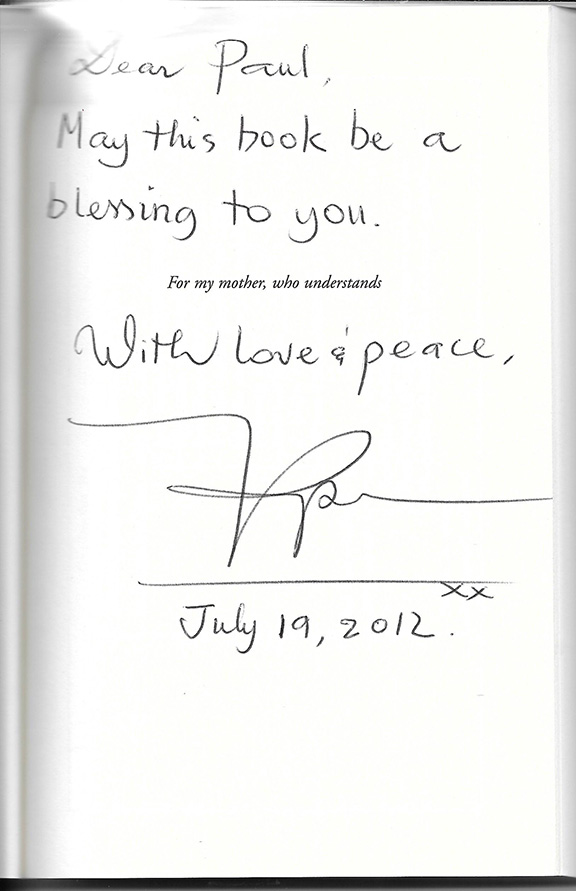 Dear Paul,
May this book be a
blessing to you.
For my mother, who understands
With love & peace,
xx
July 19, 2012.